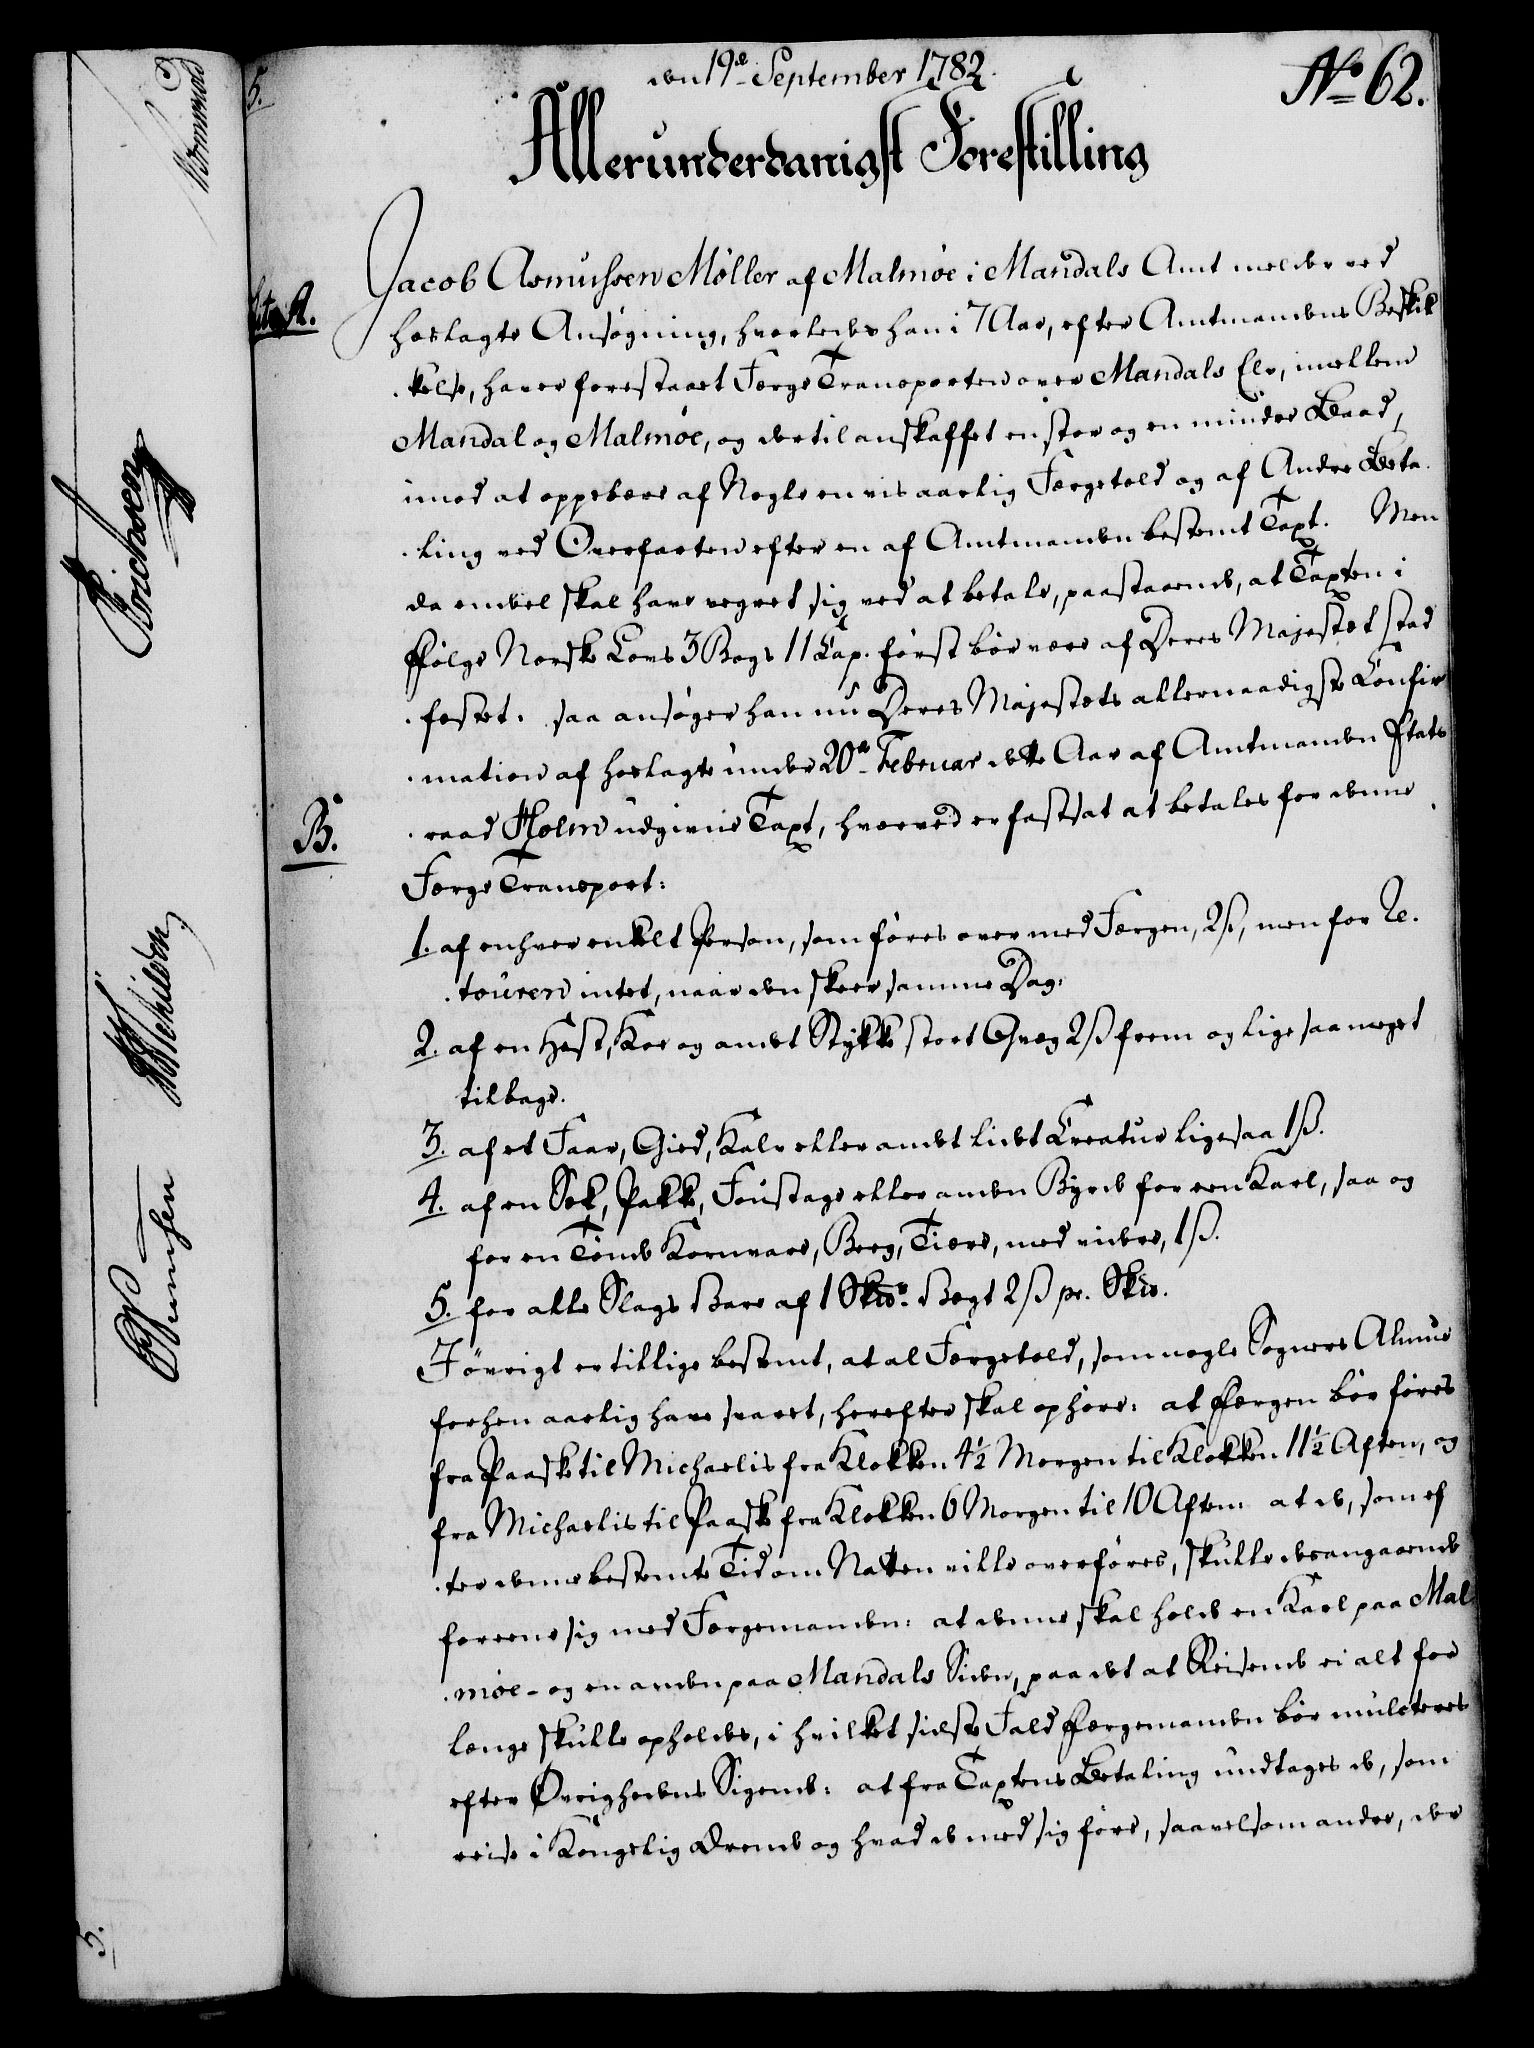 den 19de September 1782.
No 62.
Allerunderdanigst Forestilling
Jacob Asmussen Møller af Malmøe i Mandals Amt melder ved
Litr A.
hoslagte Ansøgning, hvorledes han i 7 Aar, efter Amtmandens Beskik
kelse, haver forestaaet Færge Transporten over Mandals Elv, imellem
Mandal og Malmøe, og dertil anskaffet en stor og en mindre Baad,
imod at oppebære af Nogle en vis aarlig Færgetold og af Andre Beta
ling ved Overfarten efter en af Amtmanden bestemt Taxt. Men
da endeel skal have vegret sig ved at betale, paastaaende, at Taxten i
Følge Norske Lovs 3 Bogs 11 Cap. først bør være af Deres Majestæt stad
fæstet. saa ansøger han nu Deres Majestæts allernaadigste Confir
mation af hoslagte under 20de Februar dette Aar af Amtmanden Etats
B.
raad Holm udgivne Taxt, hvorved er fastsat at betales for denne
Færge Transport:
1. af enhver enkelt Person, som føres over med Færgen, 2ß, men for Re
touren intet, naar den skeer samme Dag:
2. af en Hest, Koe og andet Stykke stort Qvæg 2ß frem og lige saa meget
tilbage.
3. af et Faar, Gied, Kalv eller andet lidet Creatur ligesaa 1ß.
4. af en Sæk, Pakke, Foustage eller anden Byrde for een Karl, saa og
for en Tønde Kornvare, Beeg, Tiære, med videre, 1ß.
5. for alle Slags Vare af 1 Skds Vægt 2ß pr. Skd.
I øvrigt er tillige bestemt, at al Færgetold, som nogle Sogners Almue
forhen aarlig have svaret, herefter skal ophøre: at Færgen bør føres
fra Paaske til Michaelis fra Klokken 4½ Morgen til Klokken 11½ Aften, og
fra Michaelis til Paaske fra Klokken 6 Morgen til 10 Aften: at de, som ef
ter denne bestemte Tid om Natten ville overføres, skulle desangaaende
foreene sig med Færgemanden: at denne skal holde en Karl paa Mal
møe- og en anden paa Mandals Siden, paa det at Reisende ei alt for
længe skulle opholdes, i hvilket sidste Fald Færgemanden bør mulcteres
efter Øvrighedens Sigende: at fra Taxtens Betaling undtages de, som
reise i Kongelig Ærende og hvad de med sig føre, saavelsom andre, der
5.